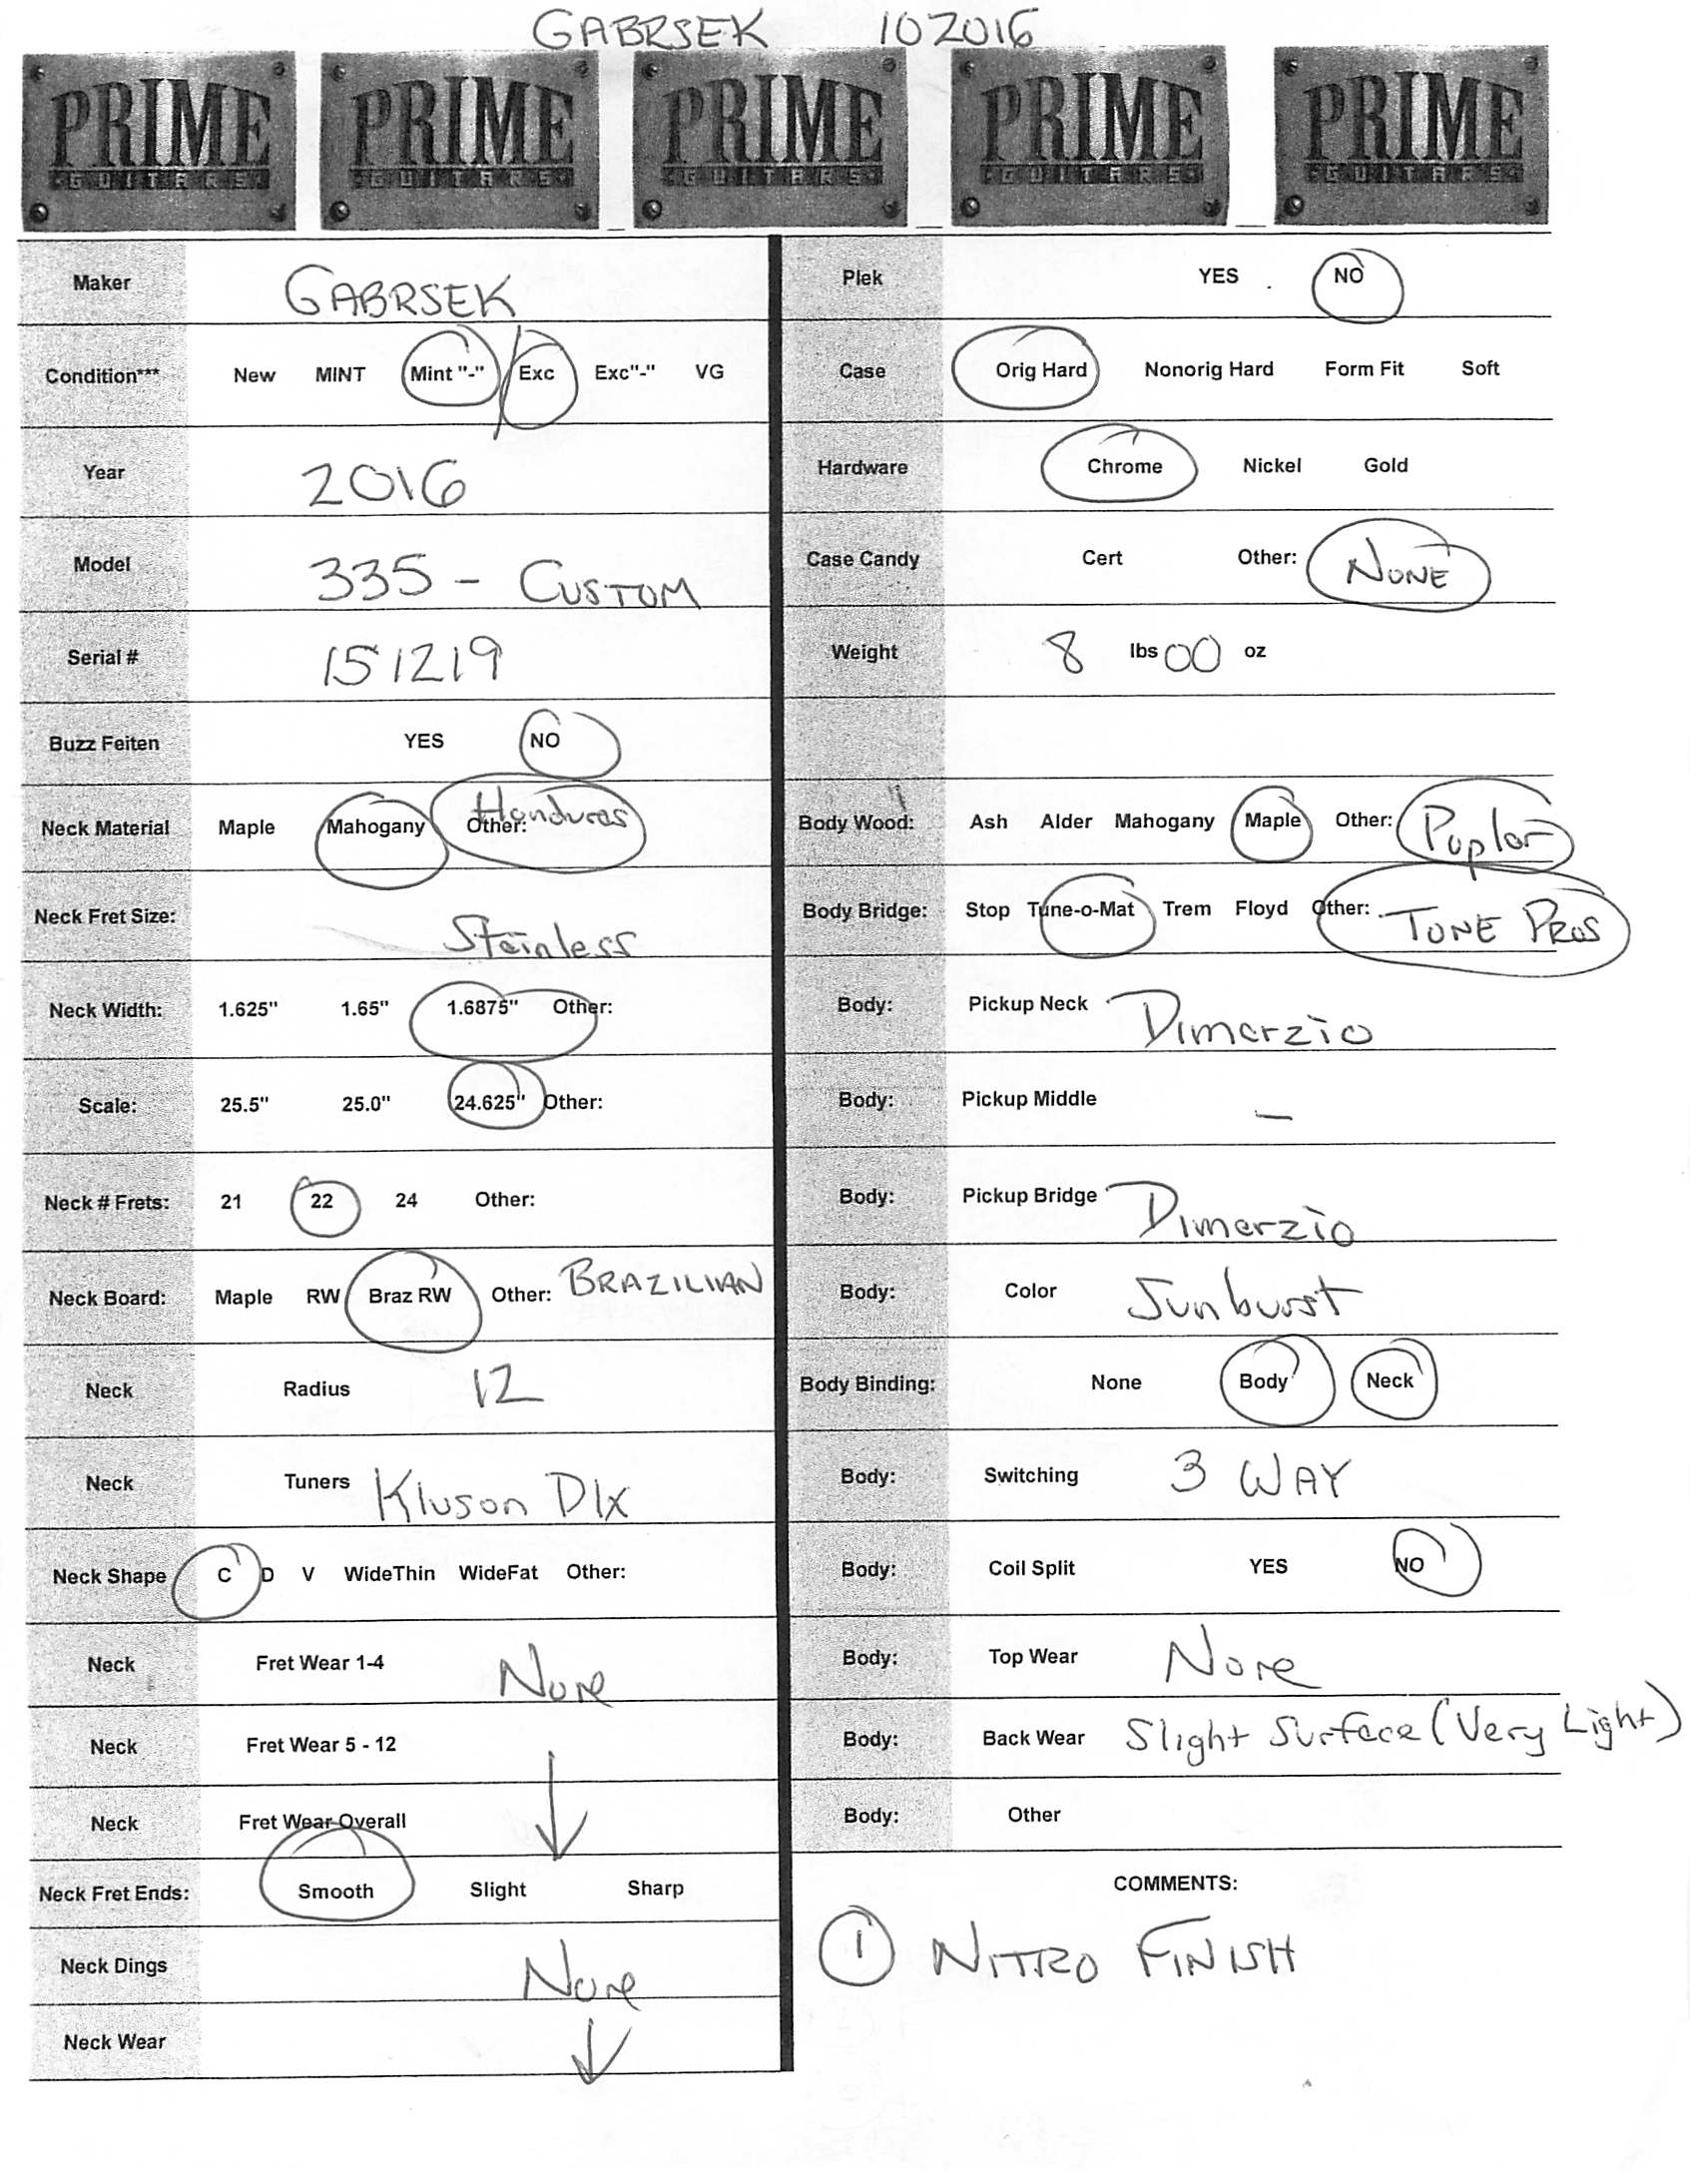 GABRSEK 102016
PRIME GUITARS PRIME GUITARS PRIME GUITARS PRIME GUITARS PRIME GUITARS
Maker GABRSEK
Condition*** New MINT Mint "-" Exc Exc"-" VG
Year 2016
Model 335 - CUSTOM
Serial # 151219
Buzz Feiten YES NO
Neck Material Maple Mahogany Other: Honduras
Neck Fret Size: Stainless
Neck Width: 1.625" 1.65" 1.6875" Other:
Scale: 25.5" 25.0" 24.625" Other:
Neck # Frets: 21 22 24 Other:
Neck Board: Maple RW Braz RW Other: BRAZILIAN
Neck Radius 12
Neck Tuners Kluson Dlx
Neck Shape C D V WideThin WideFat Other:
Neck Fret Wear 1-4 None
Neck Fret Wear 5 - 12
Neck Fret Wear Overall
Neck Fret Ends: Smooth Slight Sharp
Neck Dings None
Neck Wear
Plek YES NO
Case Orig Hard Nonorig Hard Form Fit Soft
Hardware Chrome Nickel Gold
Case Candy Cert Other: NONE
Weight 8 lbs 00 oz
Body Wood: Ash Alder Mahogany Maple Other: Poplar
Body Bridge: Stop Tune-o-Mat Trem Floyd Other: TONE PROS
Body: Pickup Neck Dimarzio
Body: Pickup Middle —
Body: Pickup Bridge Dimarzio
Body: Color Sunburst
Body Binding: None Body Neck
Body: Switching 3 WAY
Body: Coil Split YES NO
Body: Top Wear None
Body: Back Wear Slight Surface (Very Light)
Body: Other
COMMENTS:
1 NITRO FINISH